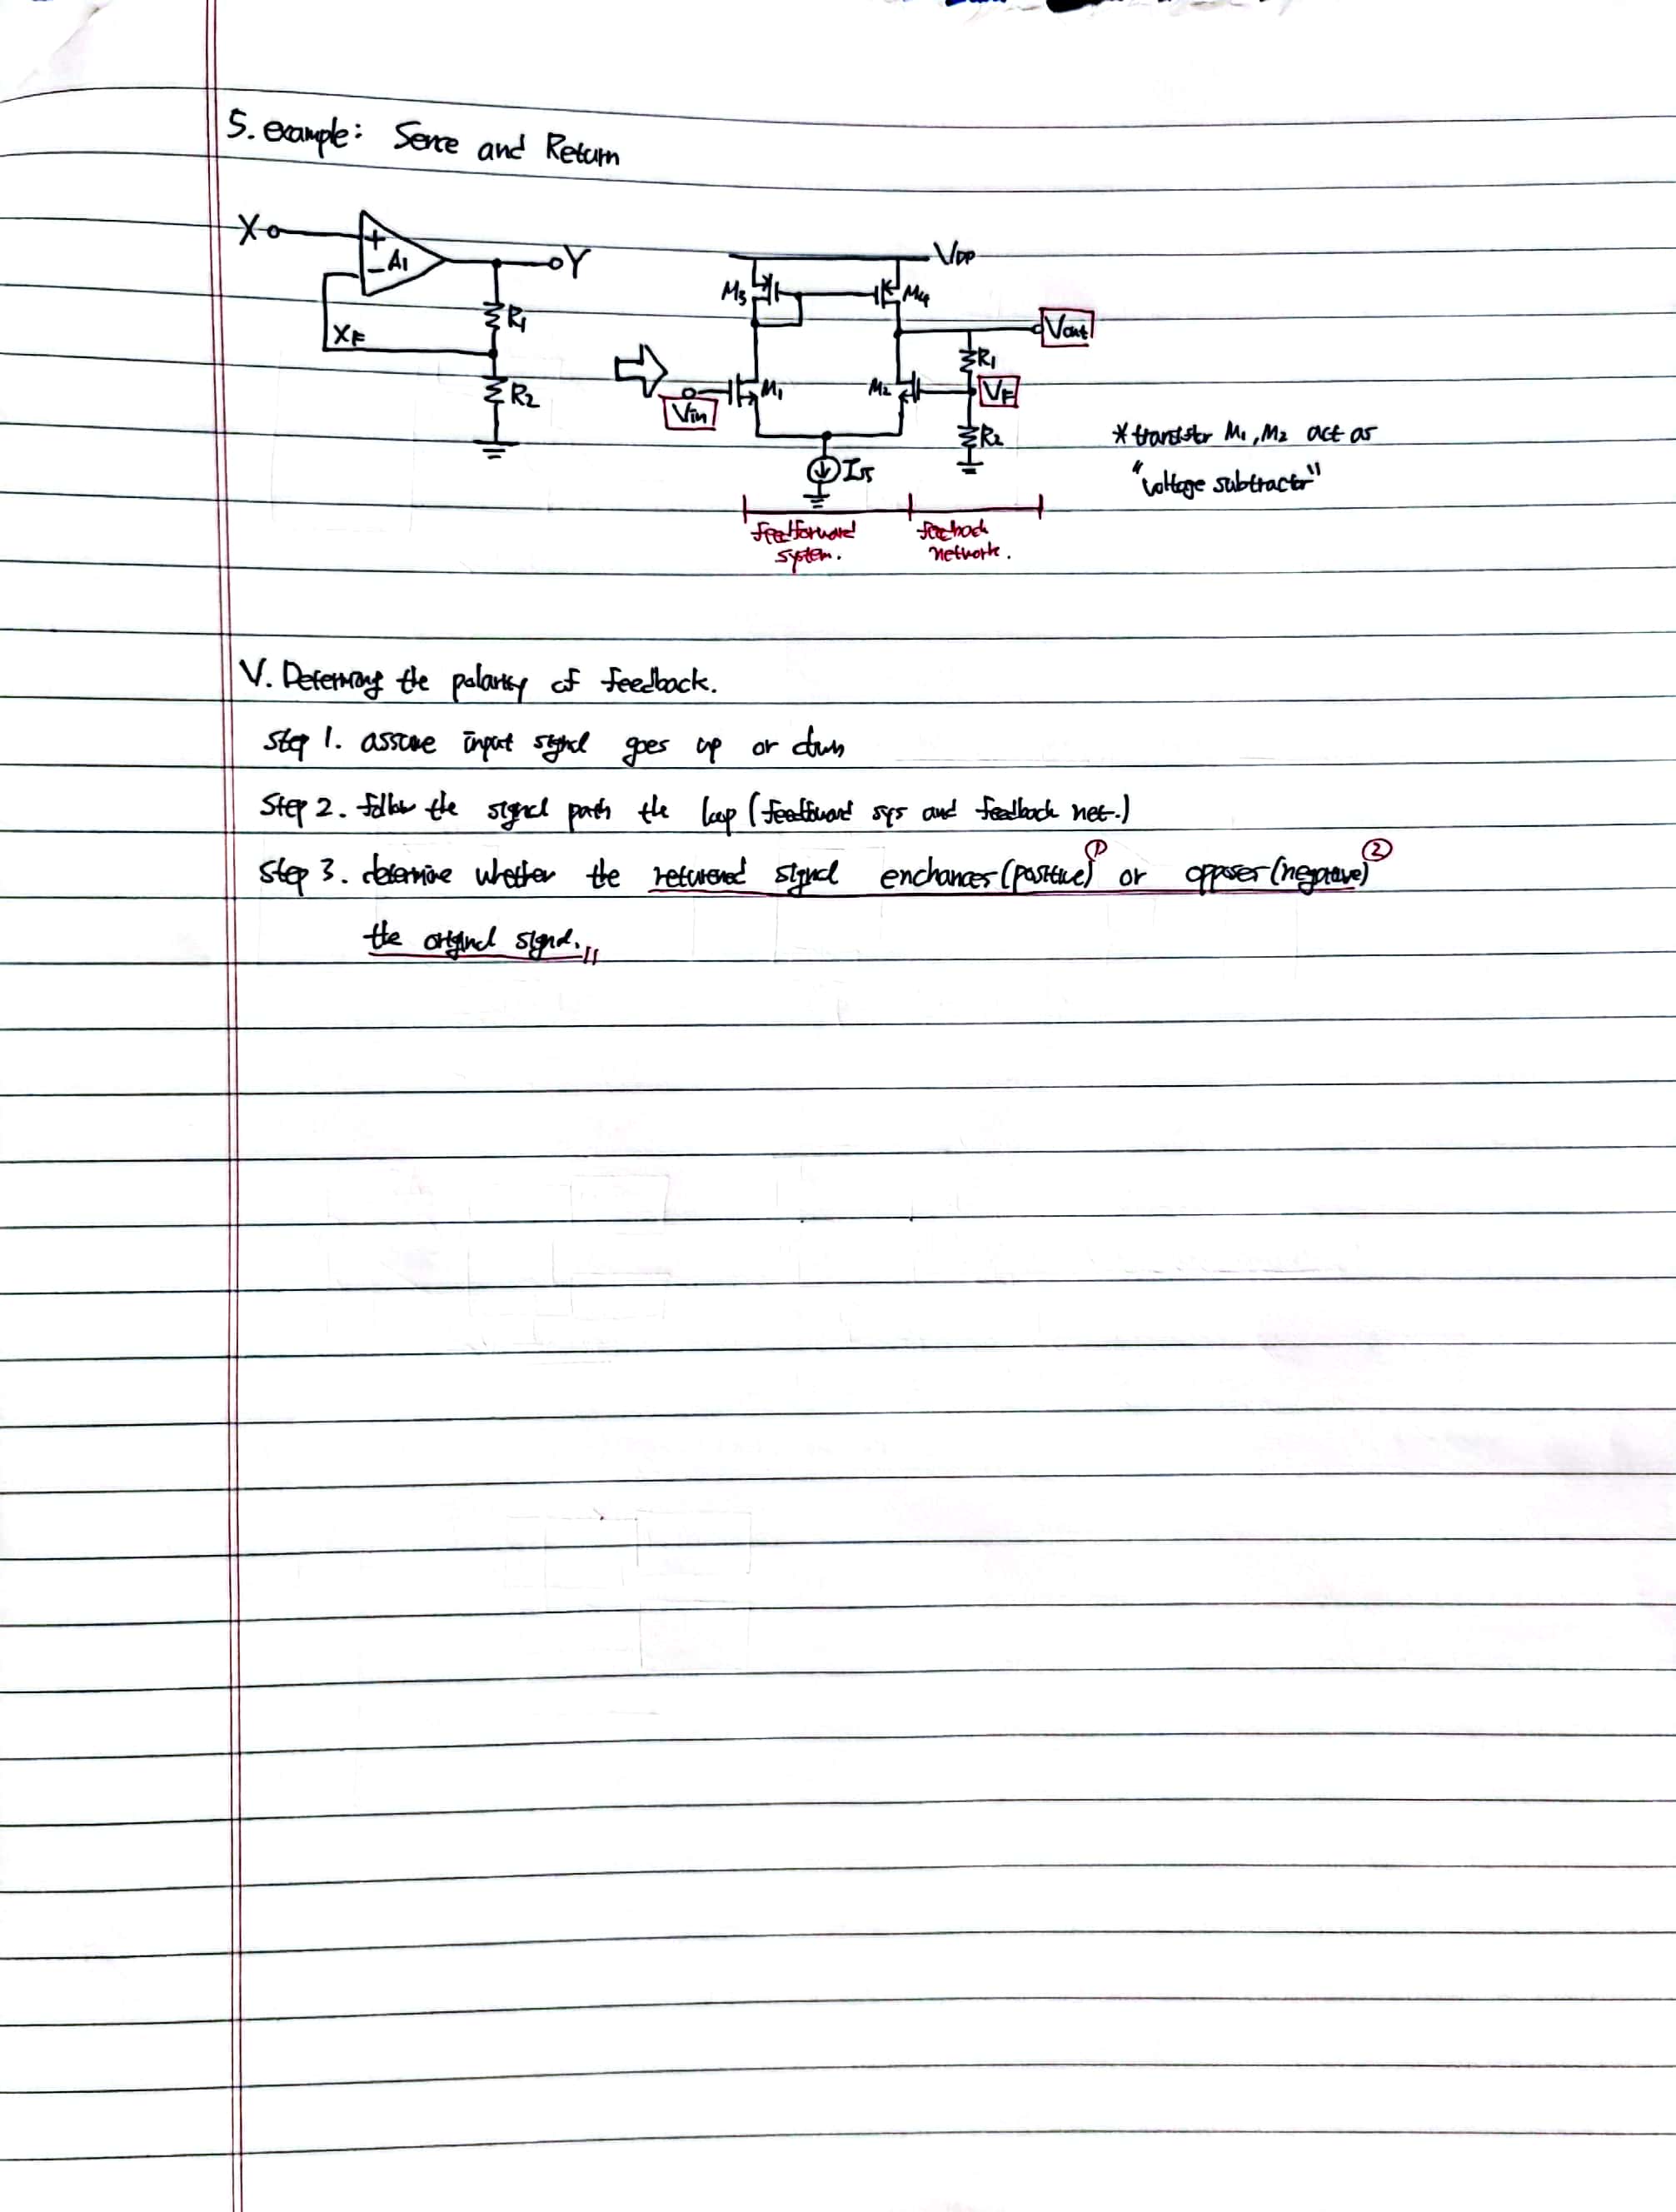 5. example: Sence and Return
X
+
- A1
Y
R1
XF
R2
VDD
M3
M4
Vout
R1
M1
M2
VF
Vin
R2
ISS
* transistor M1, M2 act as
"voltage subtractor"
feedforward
system.
feedback
network.
V. Determing the polarity of feedback.
Step 1. assume input signal goes up or down
Step 2. follow the signal path the loop (feedforward sys and feedback net.)
Step 3. determine whether the returned signal enchances (positive) ① or opposes (negative) ②
the original signal.